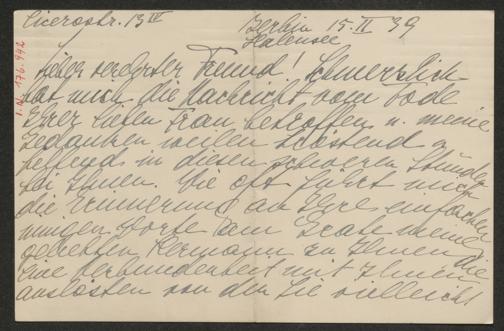 Cicerostr. 13 IV
Berlin 15. II 39
Halensee
I.N. 176.992
Lieber verehrter Freund! Schmerzlich
hat mich die Nachricht vom Tode
Ihrer lieben Frau betroffen u. meine
Gedanken weilen tröstend u
helfend in diesen schweren Stunden
bei Ihnen. Wie oft führt mich
die Erinnerung an Ihre einfachen
innigen Worte am Grabe meines
geliebten Hermann zu Ihnen die
eine Verbundenheit mit Ihnen
auslösten von der Sie vielleicht